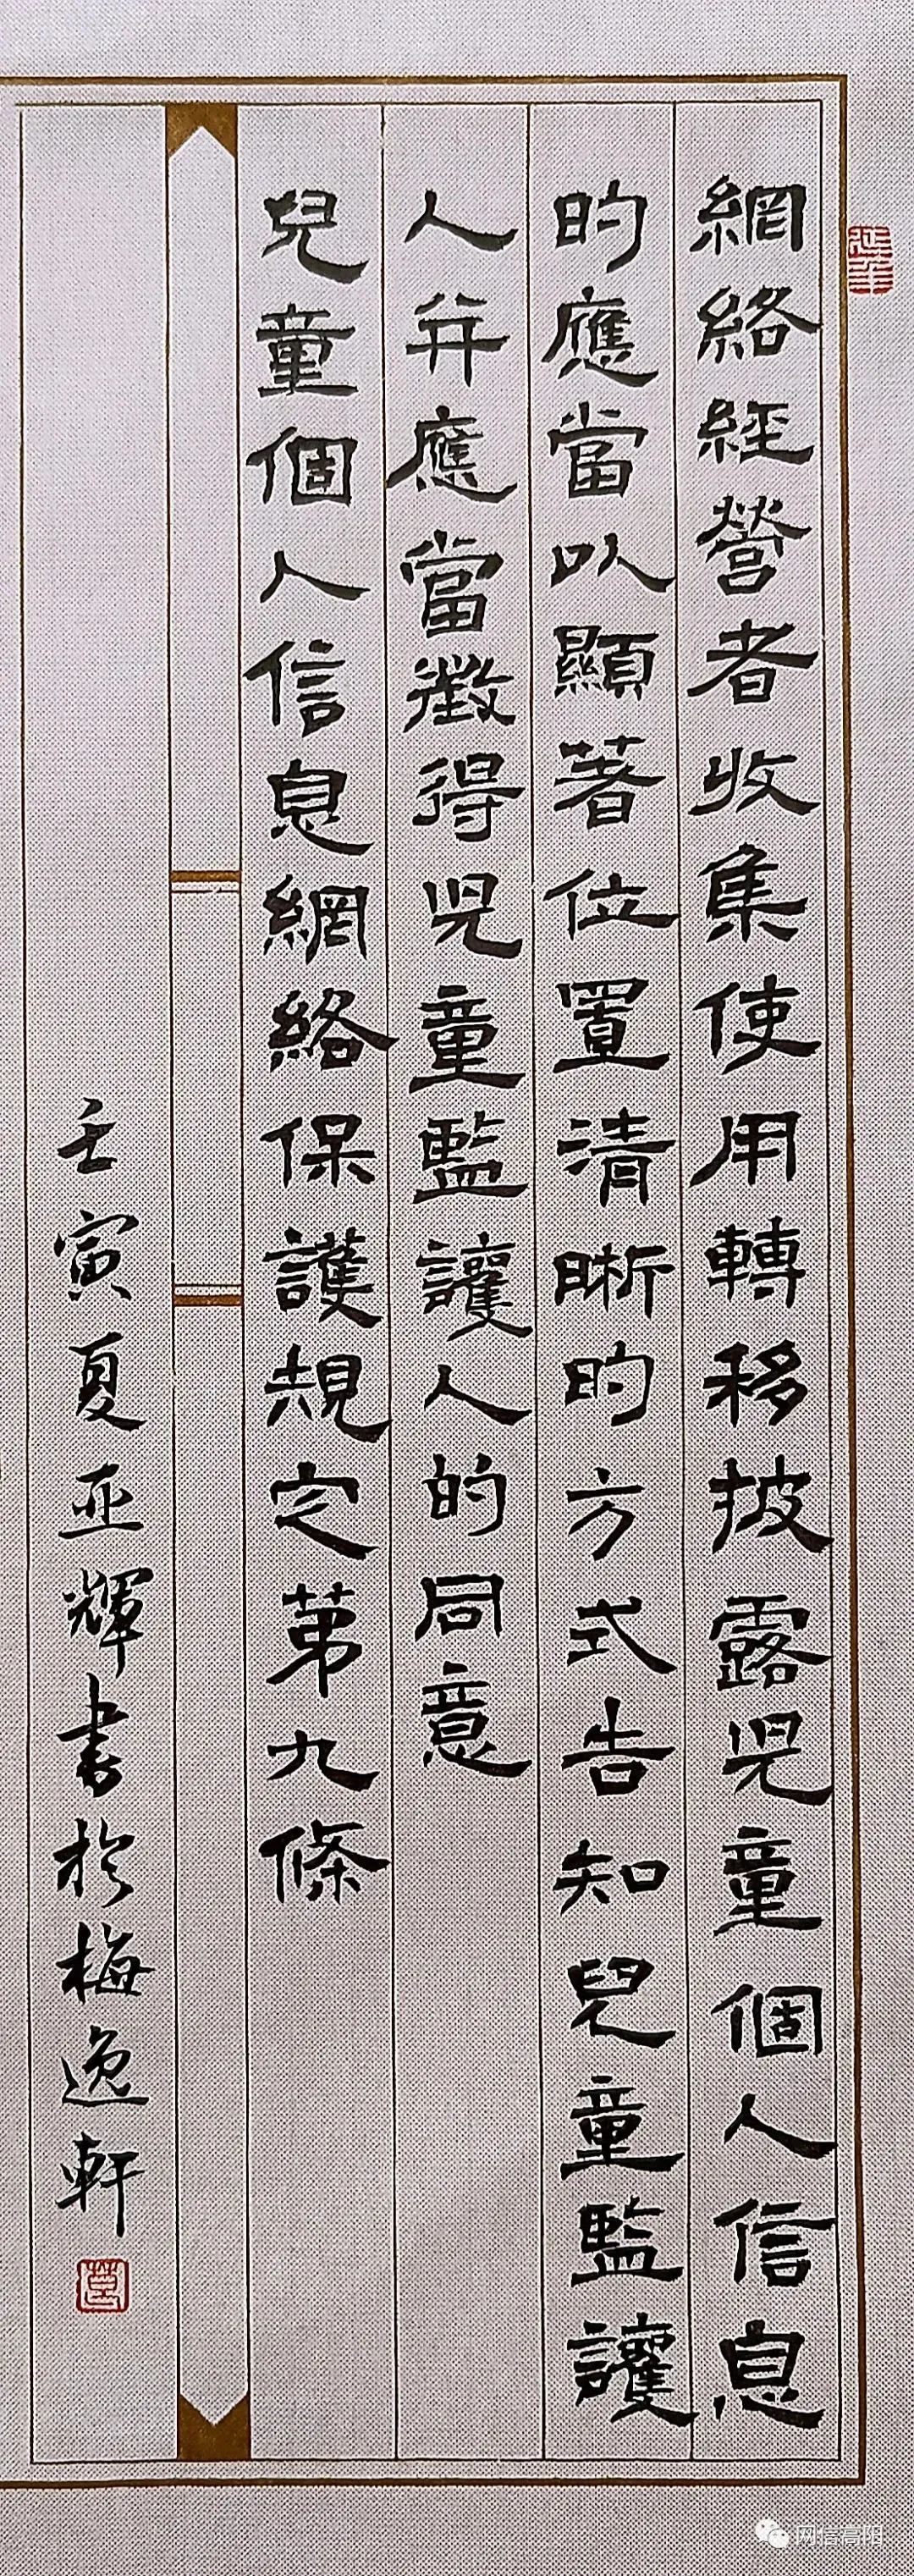 網絡經營者收集使用轉移披露兒童個人信息
的應當以顯著位置清晰的方式告知兒童監護
人并應當徵得兒童監護人的同意
兒童個人信息網絡保護規定第九條
壬寅夏亚輝書於梅逸軒
网信高阳